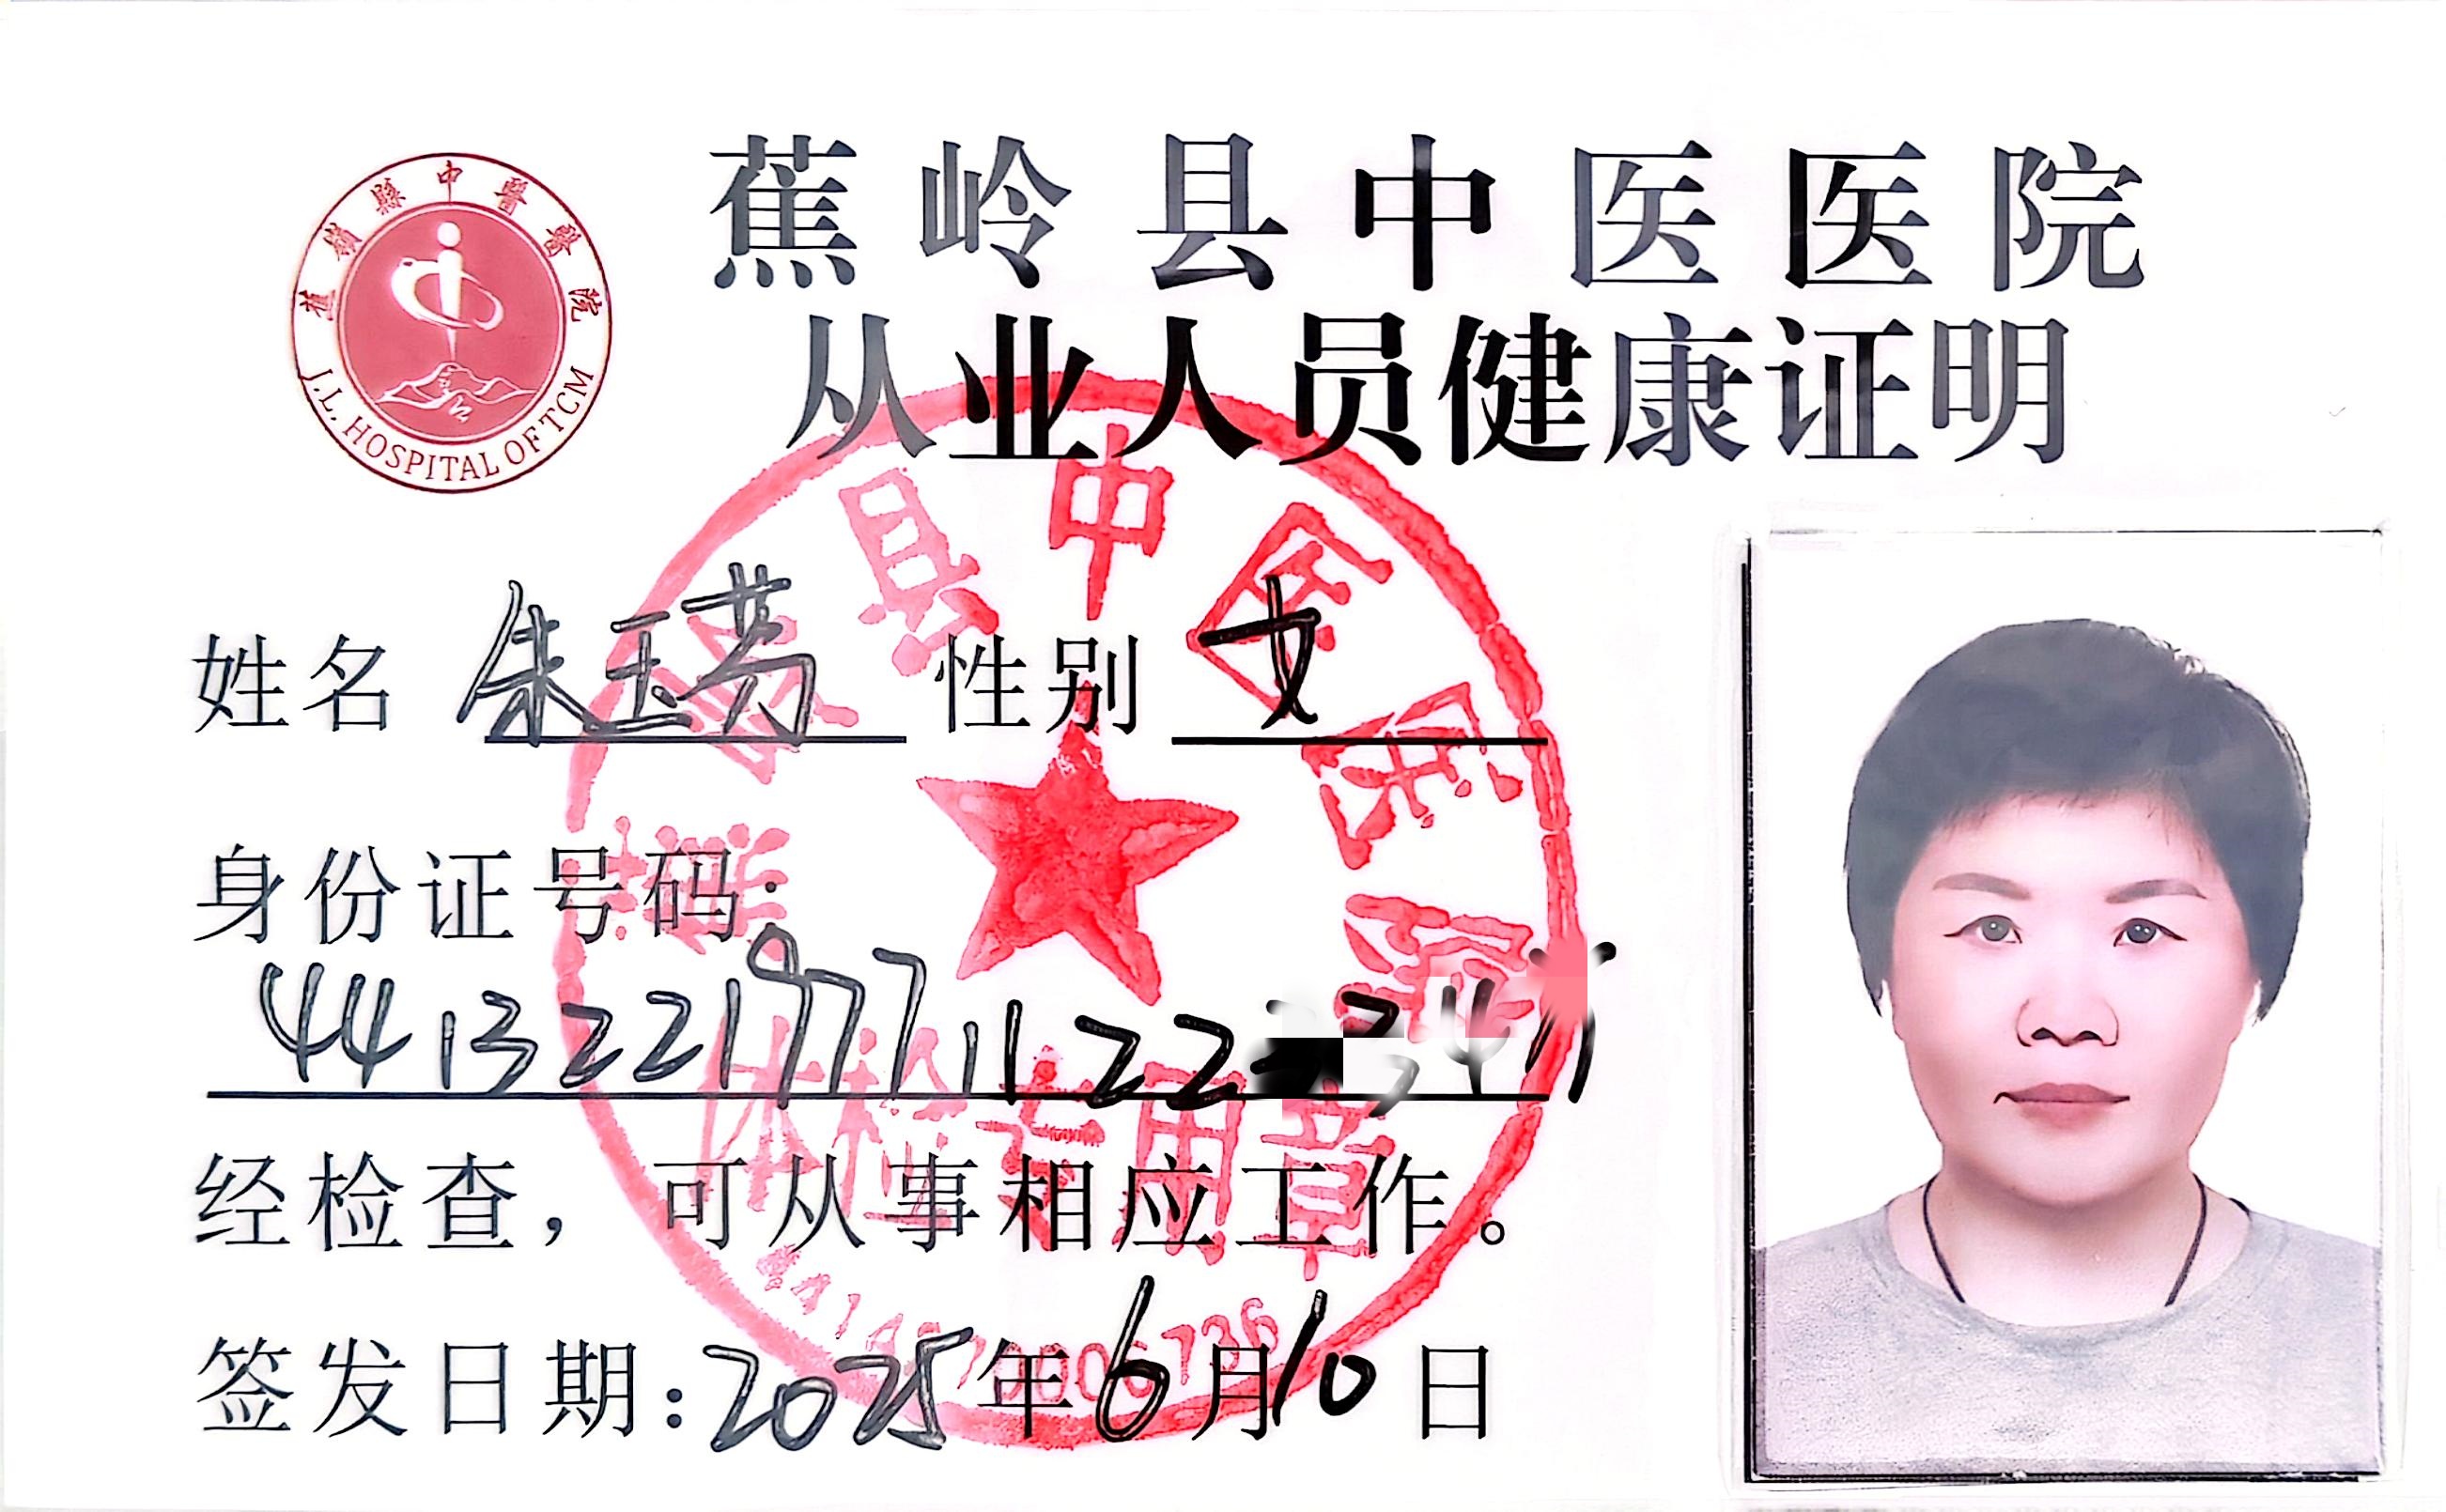 蕉岭县中医医院
从业人员健康证明
蕉嶺縣中醫醫院
J.L. HOSPITAL OF TCM
姓名 朱玉芳 性别 女
身份证号码:
44132219771122
经检查，可从事相应工作。
签发日期:2025年6月10日
县中医医院
体检专用章